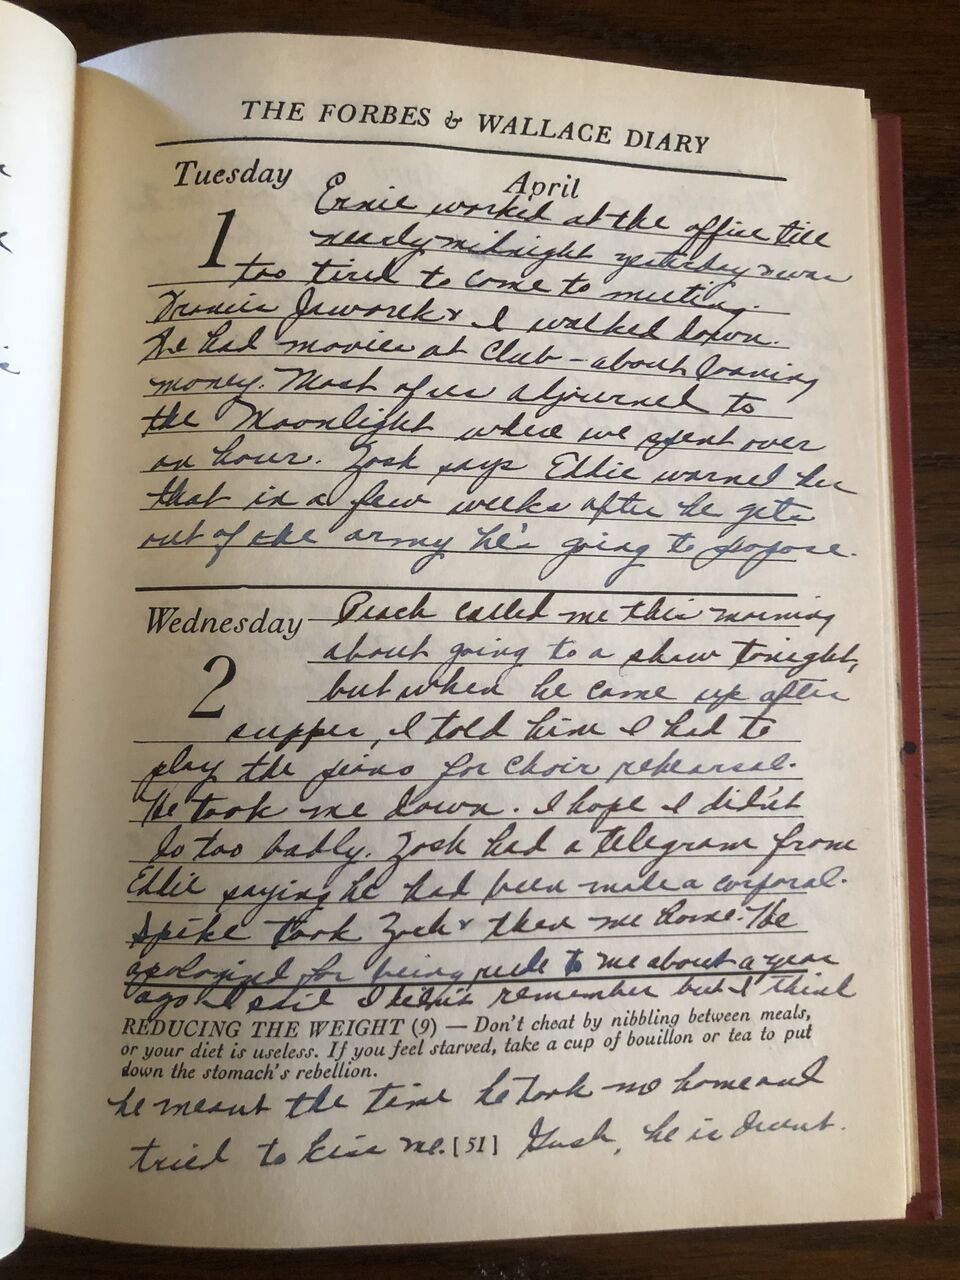 THE FORBES & WALLACE DIARY
Tuesday April
1
Ernie worked at the office till
nearly midnight yesterday & was
too tired to come to meeting.
Francis Jaworek & I walked down.
He had movies at Club - about loaning
money. Most of us adjourned to
the Moonlight where we spent over
an hour. Zosh says Eddie warned her
that in a few weeks after he gets
out of the army he's going to propose.
Wednesday
2
Peach called me this morning
about going to a show tonight,
but when he came up after
supper, I told him I had to
play the piano for choir rehearsal.
He took me down. I hope I didn't
do too badly. Zosh had a telegram from
Eddie saying he had been made a corporal.
Spike took Zosh & then me home. He
apologized for being rude to me about a year
ago. I said I didn't remember but I think
REDUCING THE WEIGHT (9) — Don't cheat by nibbling between meals,
or your diet is useless. If you feel starved, take a cup of bouillon or tea to put
down the stomach's rebellion.
he meant the time he took me home and
tried to kiss me. [51] Gosh, he is decent.